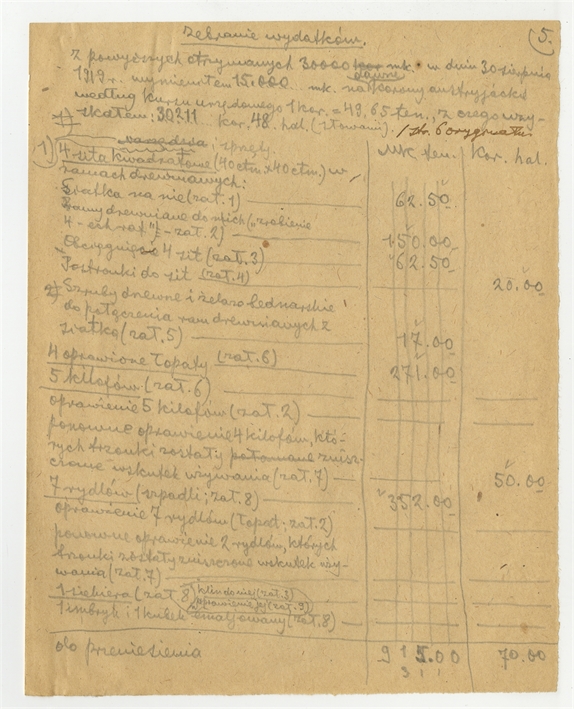 5.
Zebranie wydatków.
Z powyższych otrzymanych 30000 mk. w dniu 30 sierpnia
1919 r. wymieniłem 15.000 mk. na korony austryjackie
według kursu urzędowego 1 kor. = 49,65 fen., z czego
skałem: 30211 kor. 48 hal.
1 str. 6 oryginału.
narzędzia i sprzęty. Mk. fen. Kor. hal.
1) 4 sita kwadratowe (40ctm. x 40ctm.) w
ramach drewnianych:
Siatka na nie (zał. 1) 62.50
Ramy drewniane do nich (zrobienie
4-ech ram - zał. 2) 150.00
Obciągnięcie 4 sit (zał. 3) 62.50
Postronki do sit (zał. 4) 20.00
2) Szruby drzewne i żelazo bednarskie
do połączenia ram drewnianych z
siatką (zał. 5) 17.00
4 oprawione łopaty (zał. 6) 271.00
5 kilofów (zał. 6)
oprawienie 5 kilofów (zał. 2)
ponowne oprawienie 4 kilofów, któ-
rych trzonki zostały połamane znisz-
czone wskutek używania (zał. 7) 50.00
7 rydlów (szpadli; zał. 8) 352.00
oprawienie 7 rydlów (łopat; zał. 2)
ponowne oprawienie 2 rydlów, których
trzonki zostały zniszczone wskutek uży-
wania (zał. 7)
1 siekiera (zał. 8) klin do niej (zał. 3)
oprawienie jej (zał. 3)
1 imbryk i 1 kubek emaljowany (zał. 8)
do przeniesienia 915.00 70.00